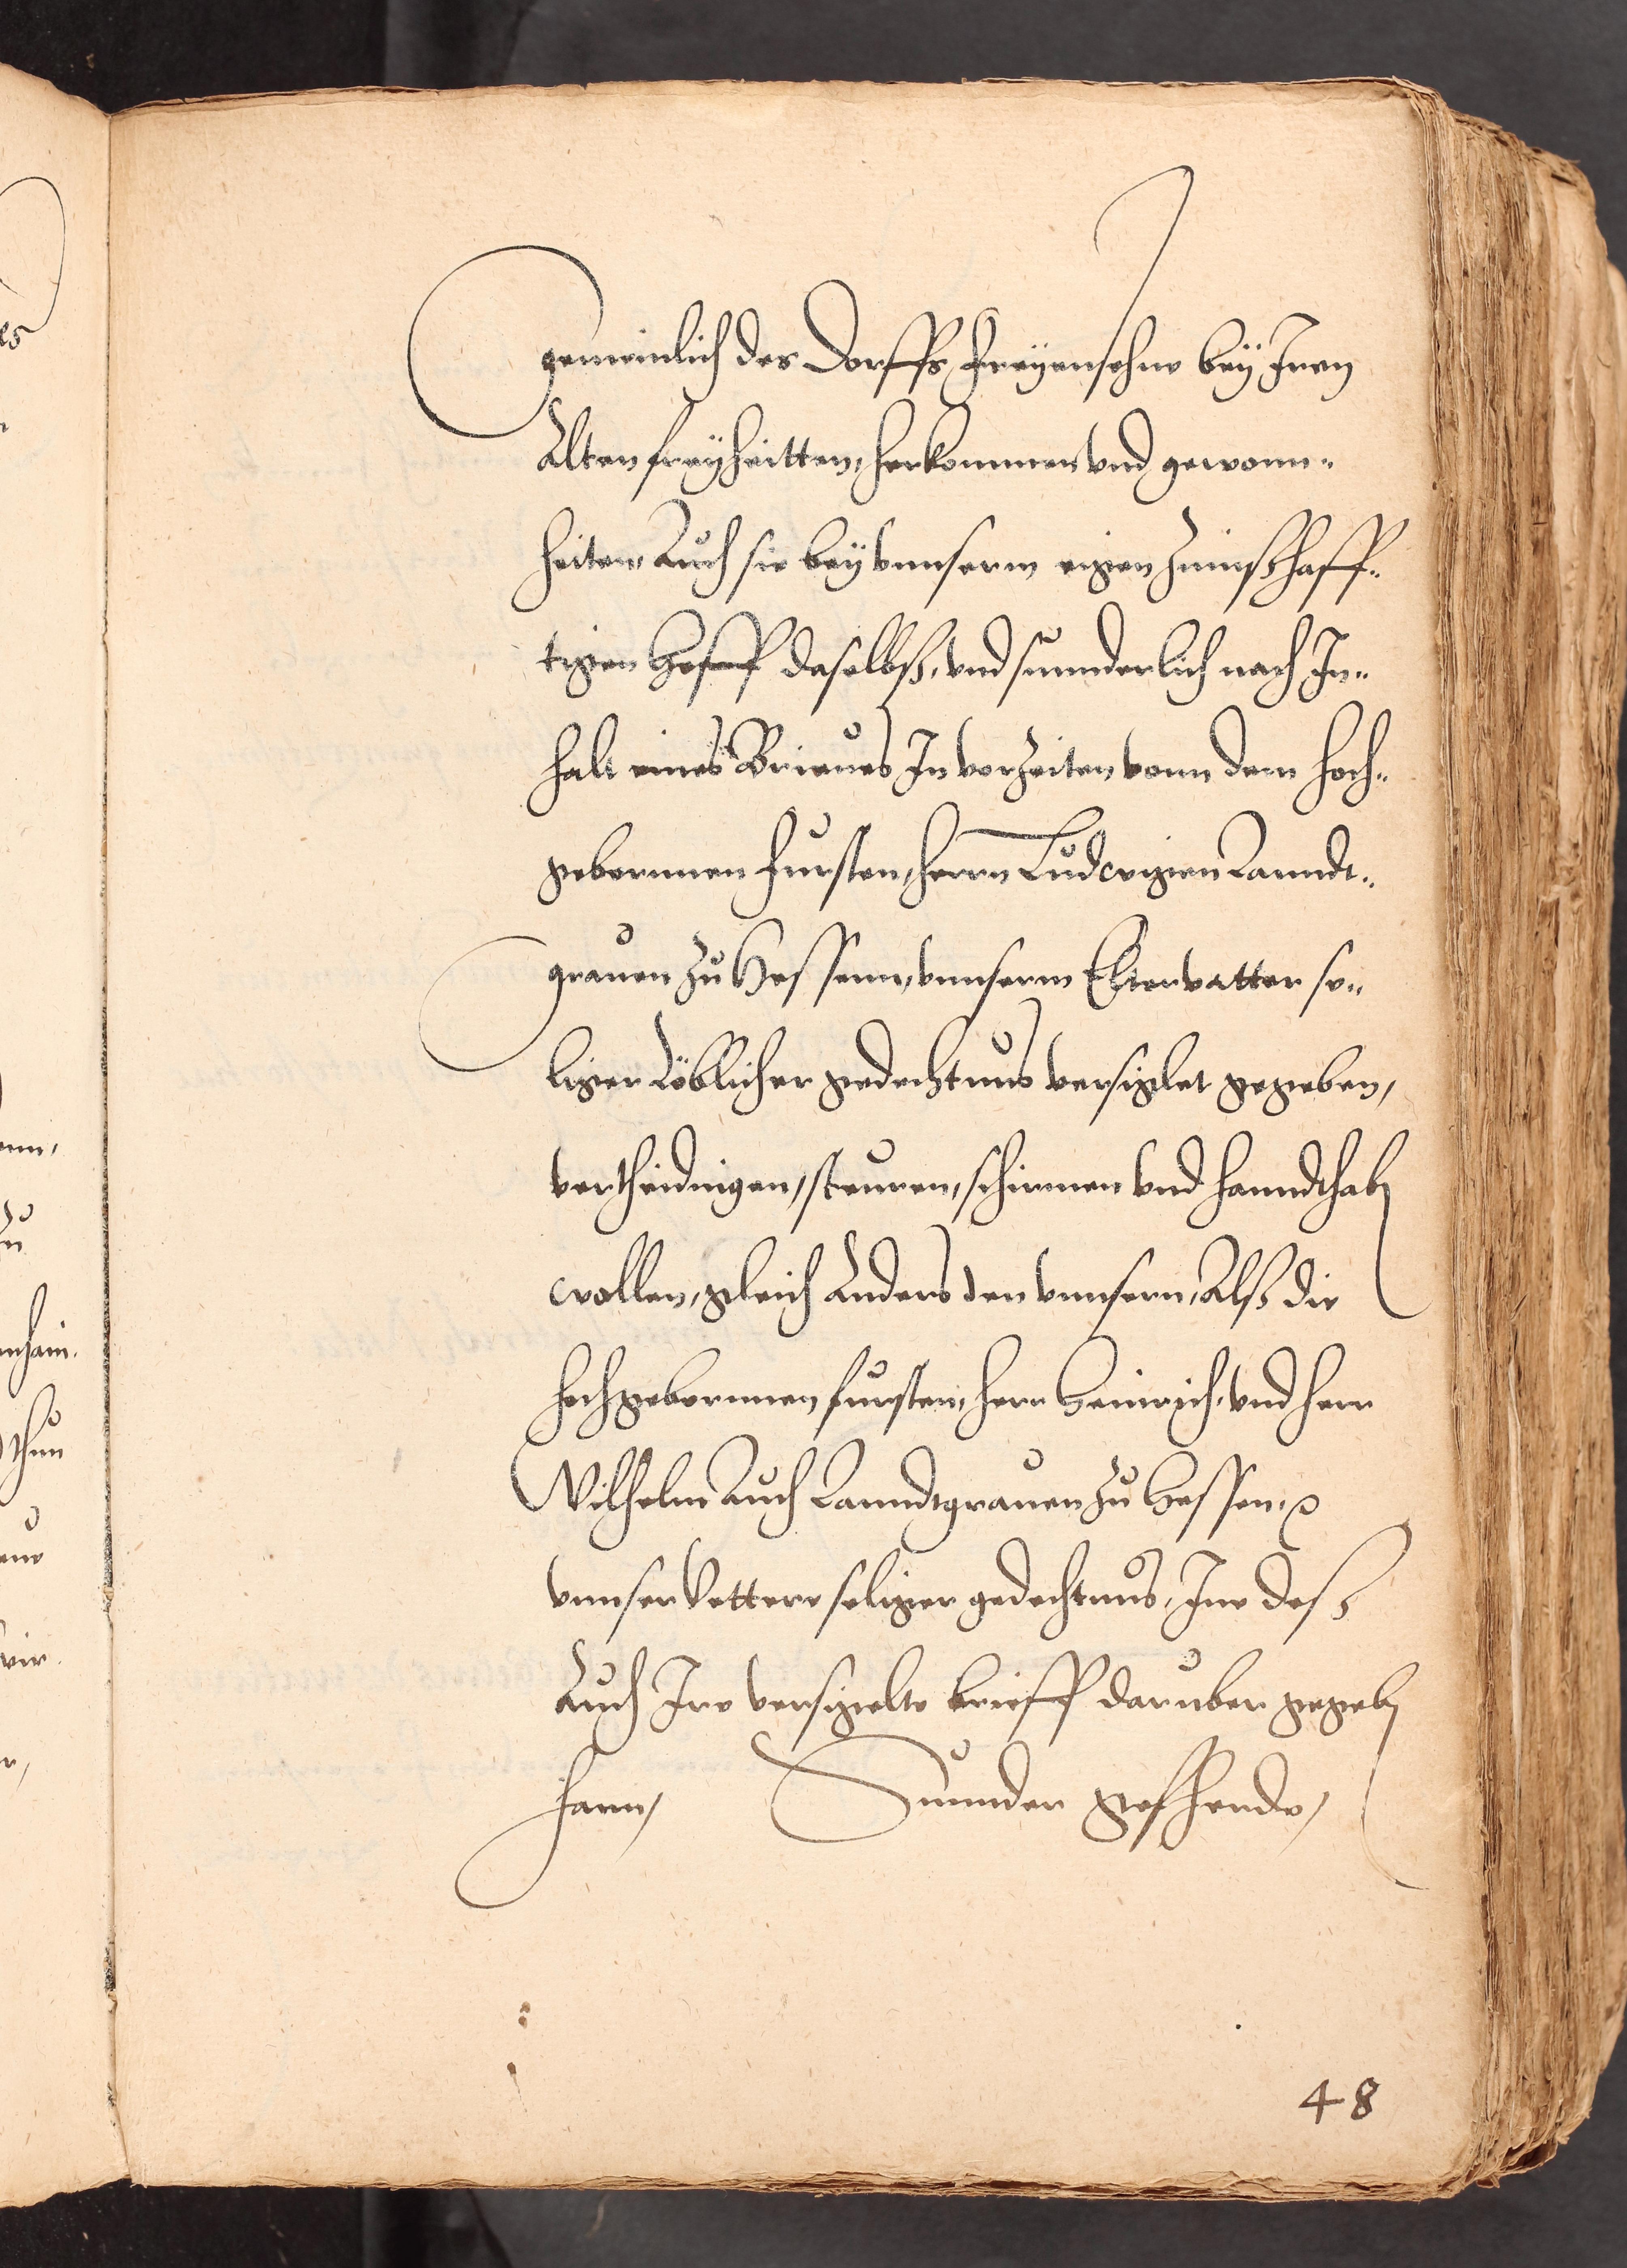 gemeinlich des Dorffs Freÿensehne beÿ Iren
Alten freÿheitten, herkommen vnd gewonn-
heiten, Auch sie beÿ vnnserm eigen Zinnßhaff-
tigen Hofff daselbß, vnd sunnderlich nach In-
halt eines Brieues In vorZeiten vonn dem hoch-
gebornnen Fursten, herrn Ludwigien Lanndt-
grauen zu Hessenn, vnnserm Eltervatter se-
liger Löblicher gedechtnus versiglet gegeben,
vertheidingen, steuren, schirmen vnd hanndthaben
wollen, gleich Anders den vnnsern, Alß die
hochgebornnen fursten, herr Heinrich, vnd herr
Wilhelm Auch Lanndtgrauen zu Hessen,
vnnser Vettere seliger gedechtnus, Ine des
Auch Ire versigelte brieff daruber gegeben
hann, Sunnder gefherde,
48